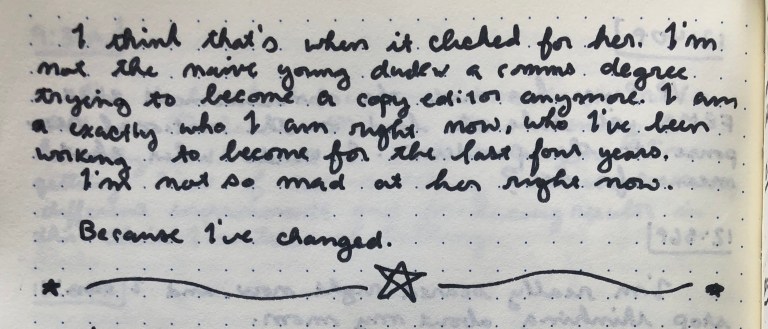 I think that's when it clicked for her. I'm
not the naive young dude w a comms degree
trying to become a copy editor anymore. I am
a exactly who I am right now, who I've been
working to become for the last four years.
I'm not so mad at her right now.
Because I've changed.